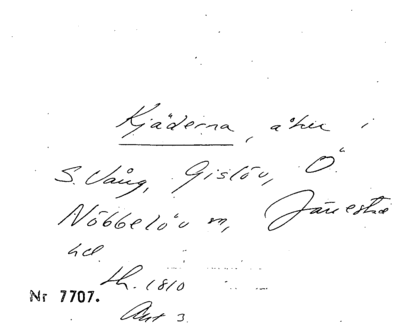 Kjäderna, åker i
S. Vång, Gislöv, Ö.
Nöbbelöv sn, Järrestad
hd.
Lh. 1810
Nr 7707.
Akt 3